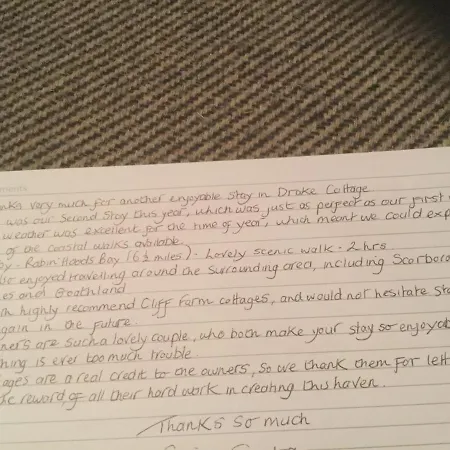 ments
nks very much for another enjoyable stay in Drake Cottage
was our second stay this year, which was just as perfect as our first
weather was excellent for the time of year, which meant we could exp
of the coastal walks available.
by - Robin Hoods Bay (6½ miles) - Lovely scenic walk - 2 hrs.
enjoyed travelling around the surrounding area, including Scarboro
es and Goathland
highly recommend Cliff Farm cottages, and would not hesitate sta
gain in the future.
ners are such a lovely couple, who both make your stay so enjoyab
thing is ever too much trouble.
ages are a real credit to the owners, so we thank them for lett
reward of all their hard work in creating this haven.
Thanks so much